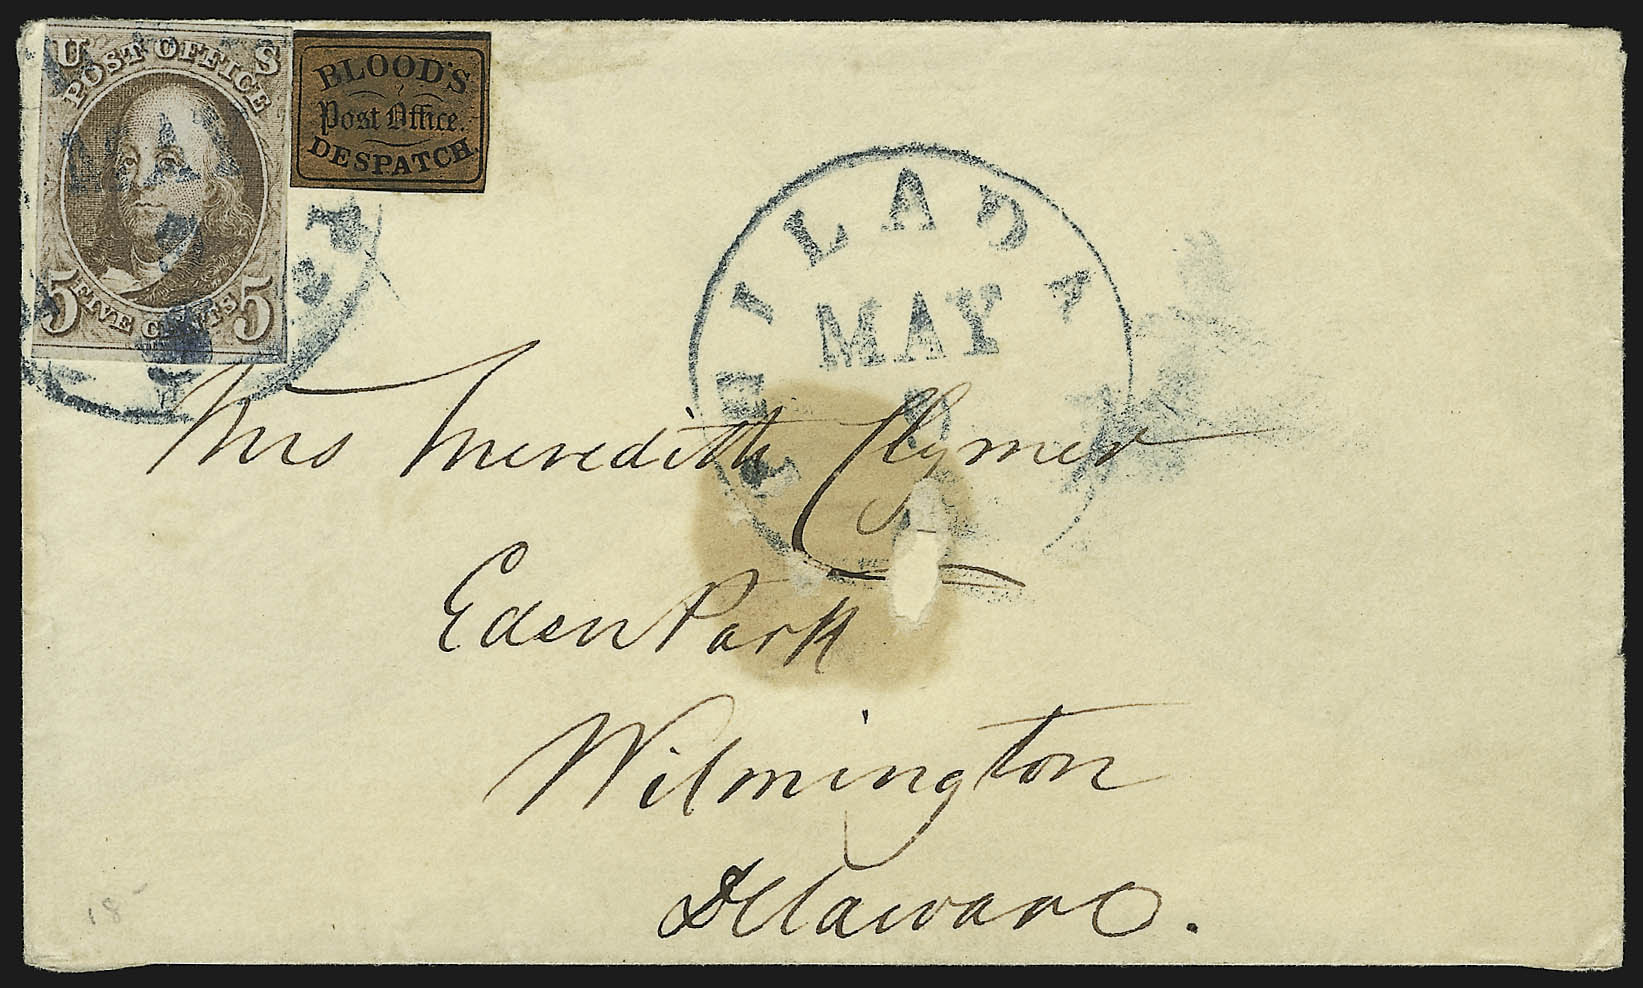 U S
POST OFFICE
5 FIVE CENTS 5
BLOOD'S
Post Office.
DESPATCH.
PHILADA
MAY
MAY
Mrs Meredith Clymer
Eden Park
Wilmington
Delaware.
18